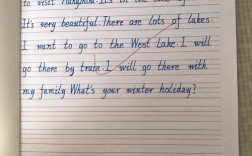 to visit
It's very beautiful. There are lots of lakes.
I want to go to the West Lake. I will
go there by train. I will go there with
my family. What's your winter holiday?